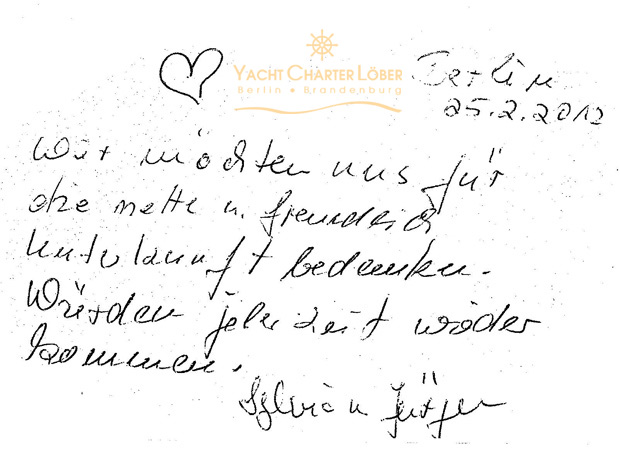 YACHT CHARTER LÖBER
Berlin • Brandenburg
Berlin
25.2.2012
Wir möchten uns für
die nette u. freundlich
Unterkunft bedanken.
Würden jeder Zeit wieder
kommen.
Sylvia u Jürgen